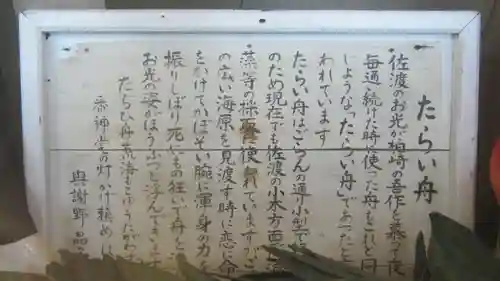 たらい舟
佐渡のお光が柏崎の吾作を慕って夜
毎通い続けた時に使った舟もこれと同
じような"たらい舟"であったとい
われています
たらい舟はごらんの通り小型で
のため現在でも佐渡の小木方面で
藻等の採 に使われていますがこ
の広い海原を見渡す時に恋に命
をかけてかぼそい腕に渾身の力を
振りしぼり死にもの狂いで舟を
お光の姿がほうふつと浮んできます
たらひ舟荒海もこゆうたがわず
番神堂の灯かげ頼めば
與謝野晶